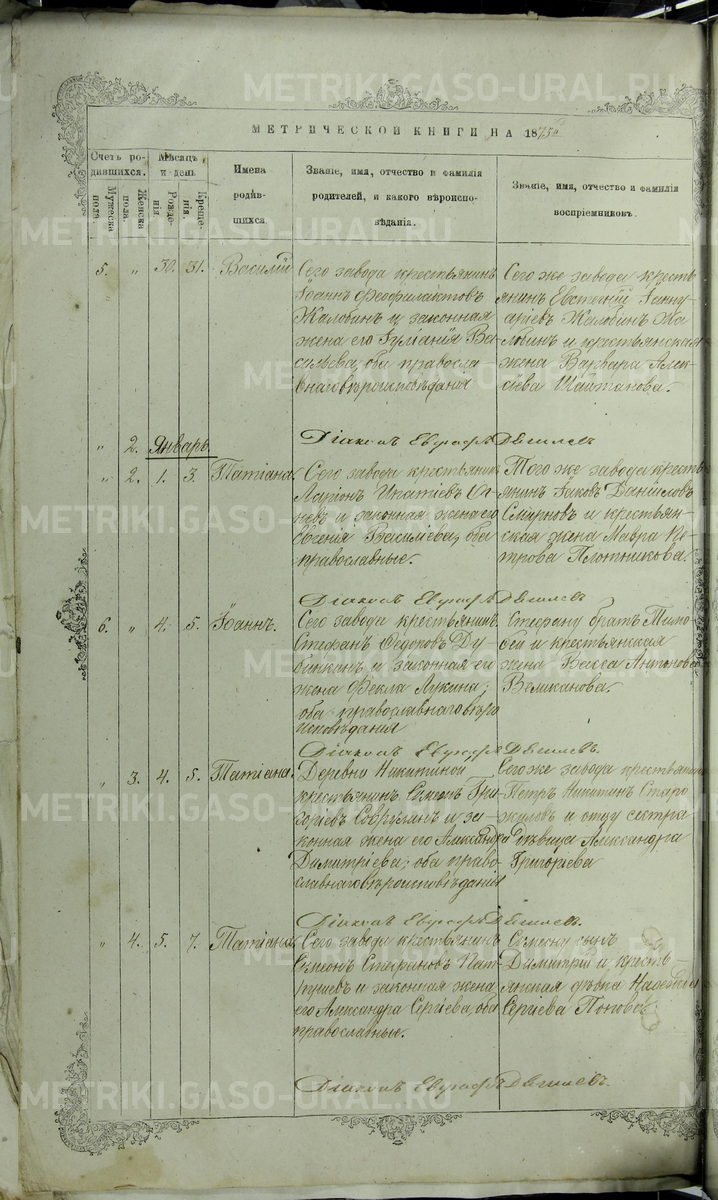 METRIKI.GASO-URAL.RU
МЕТРИЧЕСКОЙ КНИГИ НА 1875й
Счетъ родившихся.
Мужеска пола.
Женска пола.
Мѣсяцъ и день
Рожденія.
Крещенія.
Имена родившихся.
Званіе, имя, отчество и фамилія родителей, и какого вѣроисповѣданія.
Званіе, имя, отчество и фамилія воспріемниковъ.
5. „ 30. 31. Василій
Сего завода крестьянинъ
Іоаннъ Феофилактовъ
Жалобинъ и законная
жена его Іуліанія Ва-
сильева, оба правосла
внаго вѣроисповѣданія
Сего же завода кресть
янинъ Евстигній Іанну-
аріевъ Жалобинъ
и крестьянская
жена Варвара Алек-
сіева Шайтанова.
Діаконъ Евграфъ
„ 2. Январь.
„ 2. 1. 3. Татіана
Сего завода крестьянинъ
Ларіонъ Ипатіевъ
и законная жена его
Евгенія Васильева, оба
православные.
Того же завода кресть
янинъ Іаковъ Даніиловъ
Смирновъ и крестьян-
ская жена Мавра Пе-
трова Плотникова.
Діаконъ Евграфъ
6. „ 4. 5. Іоаннъ.
Сего завода крестьянинъ
Стефанъ Ѳедоровъ Ду-
бинкинъ и законная его
жена Фекла Лукина;
оба православнаго вѣро
исповѣданія
Стефану братъ Тимо-
фей и крестьянская
жена Васса Антонова
Великанова.
Діаконъ Евграфъ
„ 3. 4. 5. Татіана.
Деревни Никитиной
крестьянинъ Симеонъ Гри-
горіевъ и за-
конная жена его Александра
Димитріева; оба право-
славнаго вѣроисповѣданія
Сего же завода крестьянинъ
Петръ Никитинъ Старо
и отцу сестра
дѣвица Александра
Григоріева
Діаконъ Евграфъ
„ 4. 5. 7. Татіана
Сего завода крестьянинъ
Симеонъ Стефановъ Пат-
рушевъ и законная жена
его Александра Сергіева, оба
православные.
Симеона сынъ
Димитрій и кресть-
янская дѣвка Надежда
Сергіева Попова
Діаконъ Евграфъ